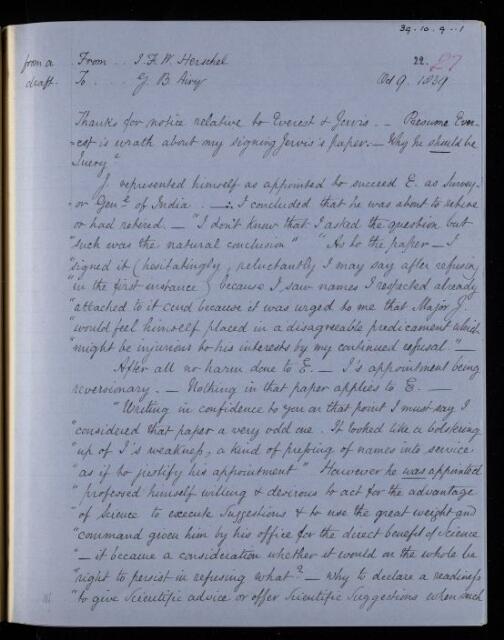 39-10-9--1
22. 27
from a From .. J. F. W. Herschel
draft. To .... G. B. Airy Oct 9. 1839
Thanks for notice relative to Everest & Jervis. — Presume Ever-
-est is wrath about my signing Jervis's paper. — Why he should be
Query"
J. represented himself as appointed to succeed E. as Survey-
-or Genl. of India. — ∴ I concluded that he was about to retire
or had retired. — "I don't know that I asked the question but
"such was the natural conclusion" "As to the paper — I
"signed it (hesitatingly, reluctantly I may say after refusing
"in the first instance) because I saw names I respected already
"attached to it and because it was urged to me that Major J.
"would feel himself placed in a disagreeable predicament which
"might be injurious to his interests by my continued refusal." —
After all no harm done to E. — J's appointment being
reversionary. — Nothing in that paper applies to E. —
"Writing in confidence to you on that point I must say I
"considered that paper a very odd one. It looked like a bolstering
"up of J's weakness, a kind of pressing of names into service
"as if to justify his appointment" However he was appointed
"professed himself willing & desirous to act for the advantage
"of Science to execute Suggestions & to use the great weight and
"command given him by his office for the direct benefit of Science
"— it became a consideration whether it would on the whole be
"right to persist in refusing what? — why to declare a readiness
"to give Scientific advice or offer Scientific Suggestions when such